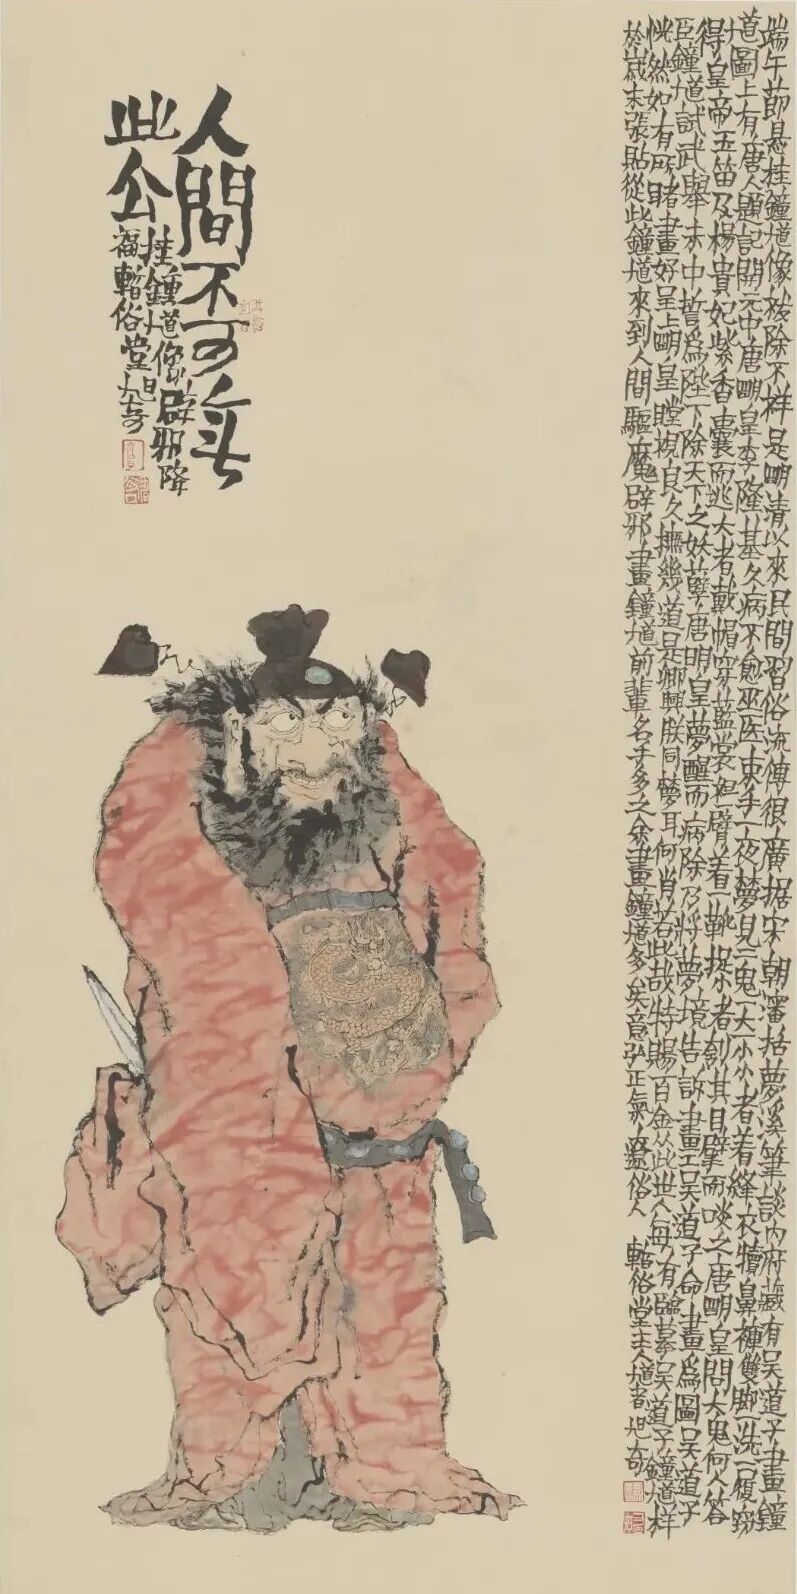 端午節悬挂鐘馗像祓除不祥是明清以來民間習俗流傳很廣据宋朝瀋括夢溪筆談内府藏有吴道子畫鐘
馗圖上有唐人題記開元中唐明皇李隆基久病不愈巫医束手一夜夢見二鬼一大一小小者着縫衣犢鼻褲雙脚一洗一履窃
得皇帝玉笛及楊貴妃紫香囊而逃大者戴帽穿藍裳袒一臂着一靴捉小者刳其目擘而啖之唐明皇問大鬼何人答
臣鐘馗試武舉未中誓爲陛下除天下之妖孽唐明皇夢醒而病除乃將夢境告訴畫工吴道子命畫爲圖吴道子
恍然如有所睹畫好呈上明皇瞠視良久撫幾道是卿與朕同夢耳何肖若此哉特賜百金从此世人每有臨摹吴道子鐘馗样
於歲末張貼從此鐘馗來到人間驅魔辟邪畫鐘馗前輩名手多之余畫鐘馗多矣意弘正氣俗人 俗堂主人馗者旭奇
人間不可無
此公
挂鍾馗像辟邪降
福 俗堂旭奇